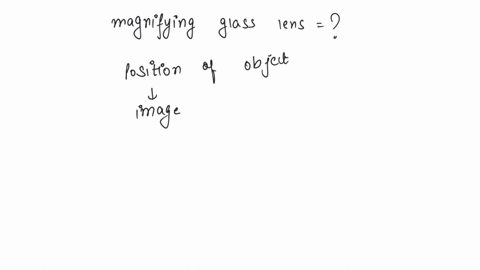 magnifying glass lens = ?
position of object
↓
image